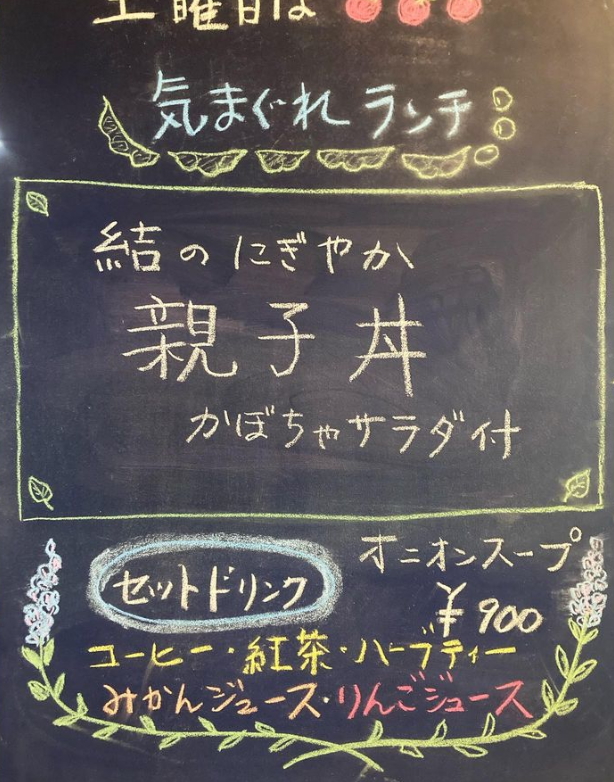 土曜日は
気まぐれランチ
結のにぎやか
親子丼
かぼちゃサラダ付
オニオンスープ
セットドリンク
¥900
コーヒー・紅茶・ハーブティー
みかんジュース・りんごジュース